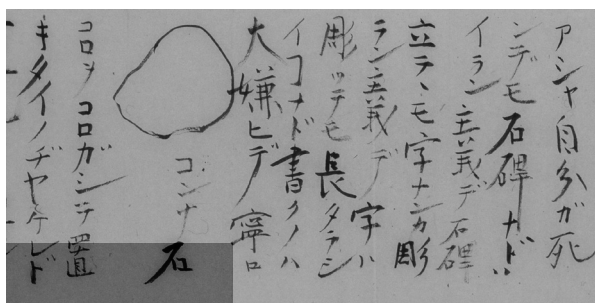 アシャ自分ガ死
ンデモ石碑ナドハ
イラン主義デ石碑
立テヽモ字ナンカ彫
ラン主義デ字ハ
彫ッテモ長タラシ
イコナド書クノハ
大嫌ヒデ寧ロ
コンナ石
コロガシテ置
キタイノヂヤケレド